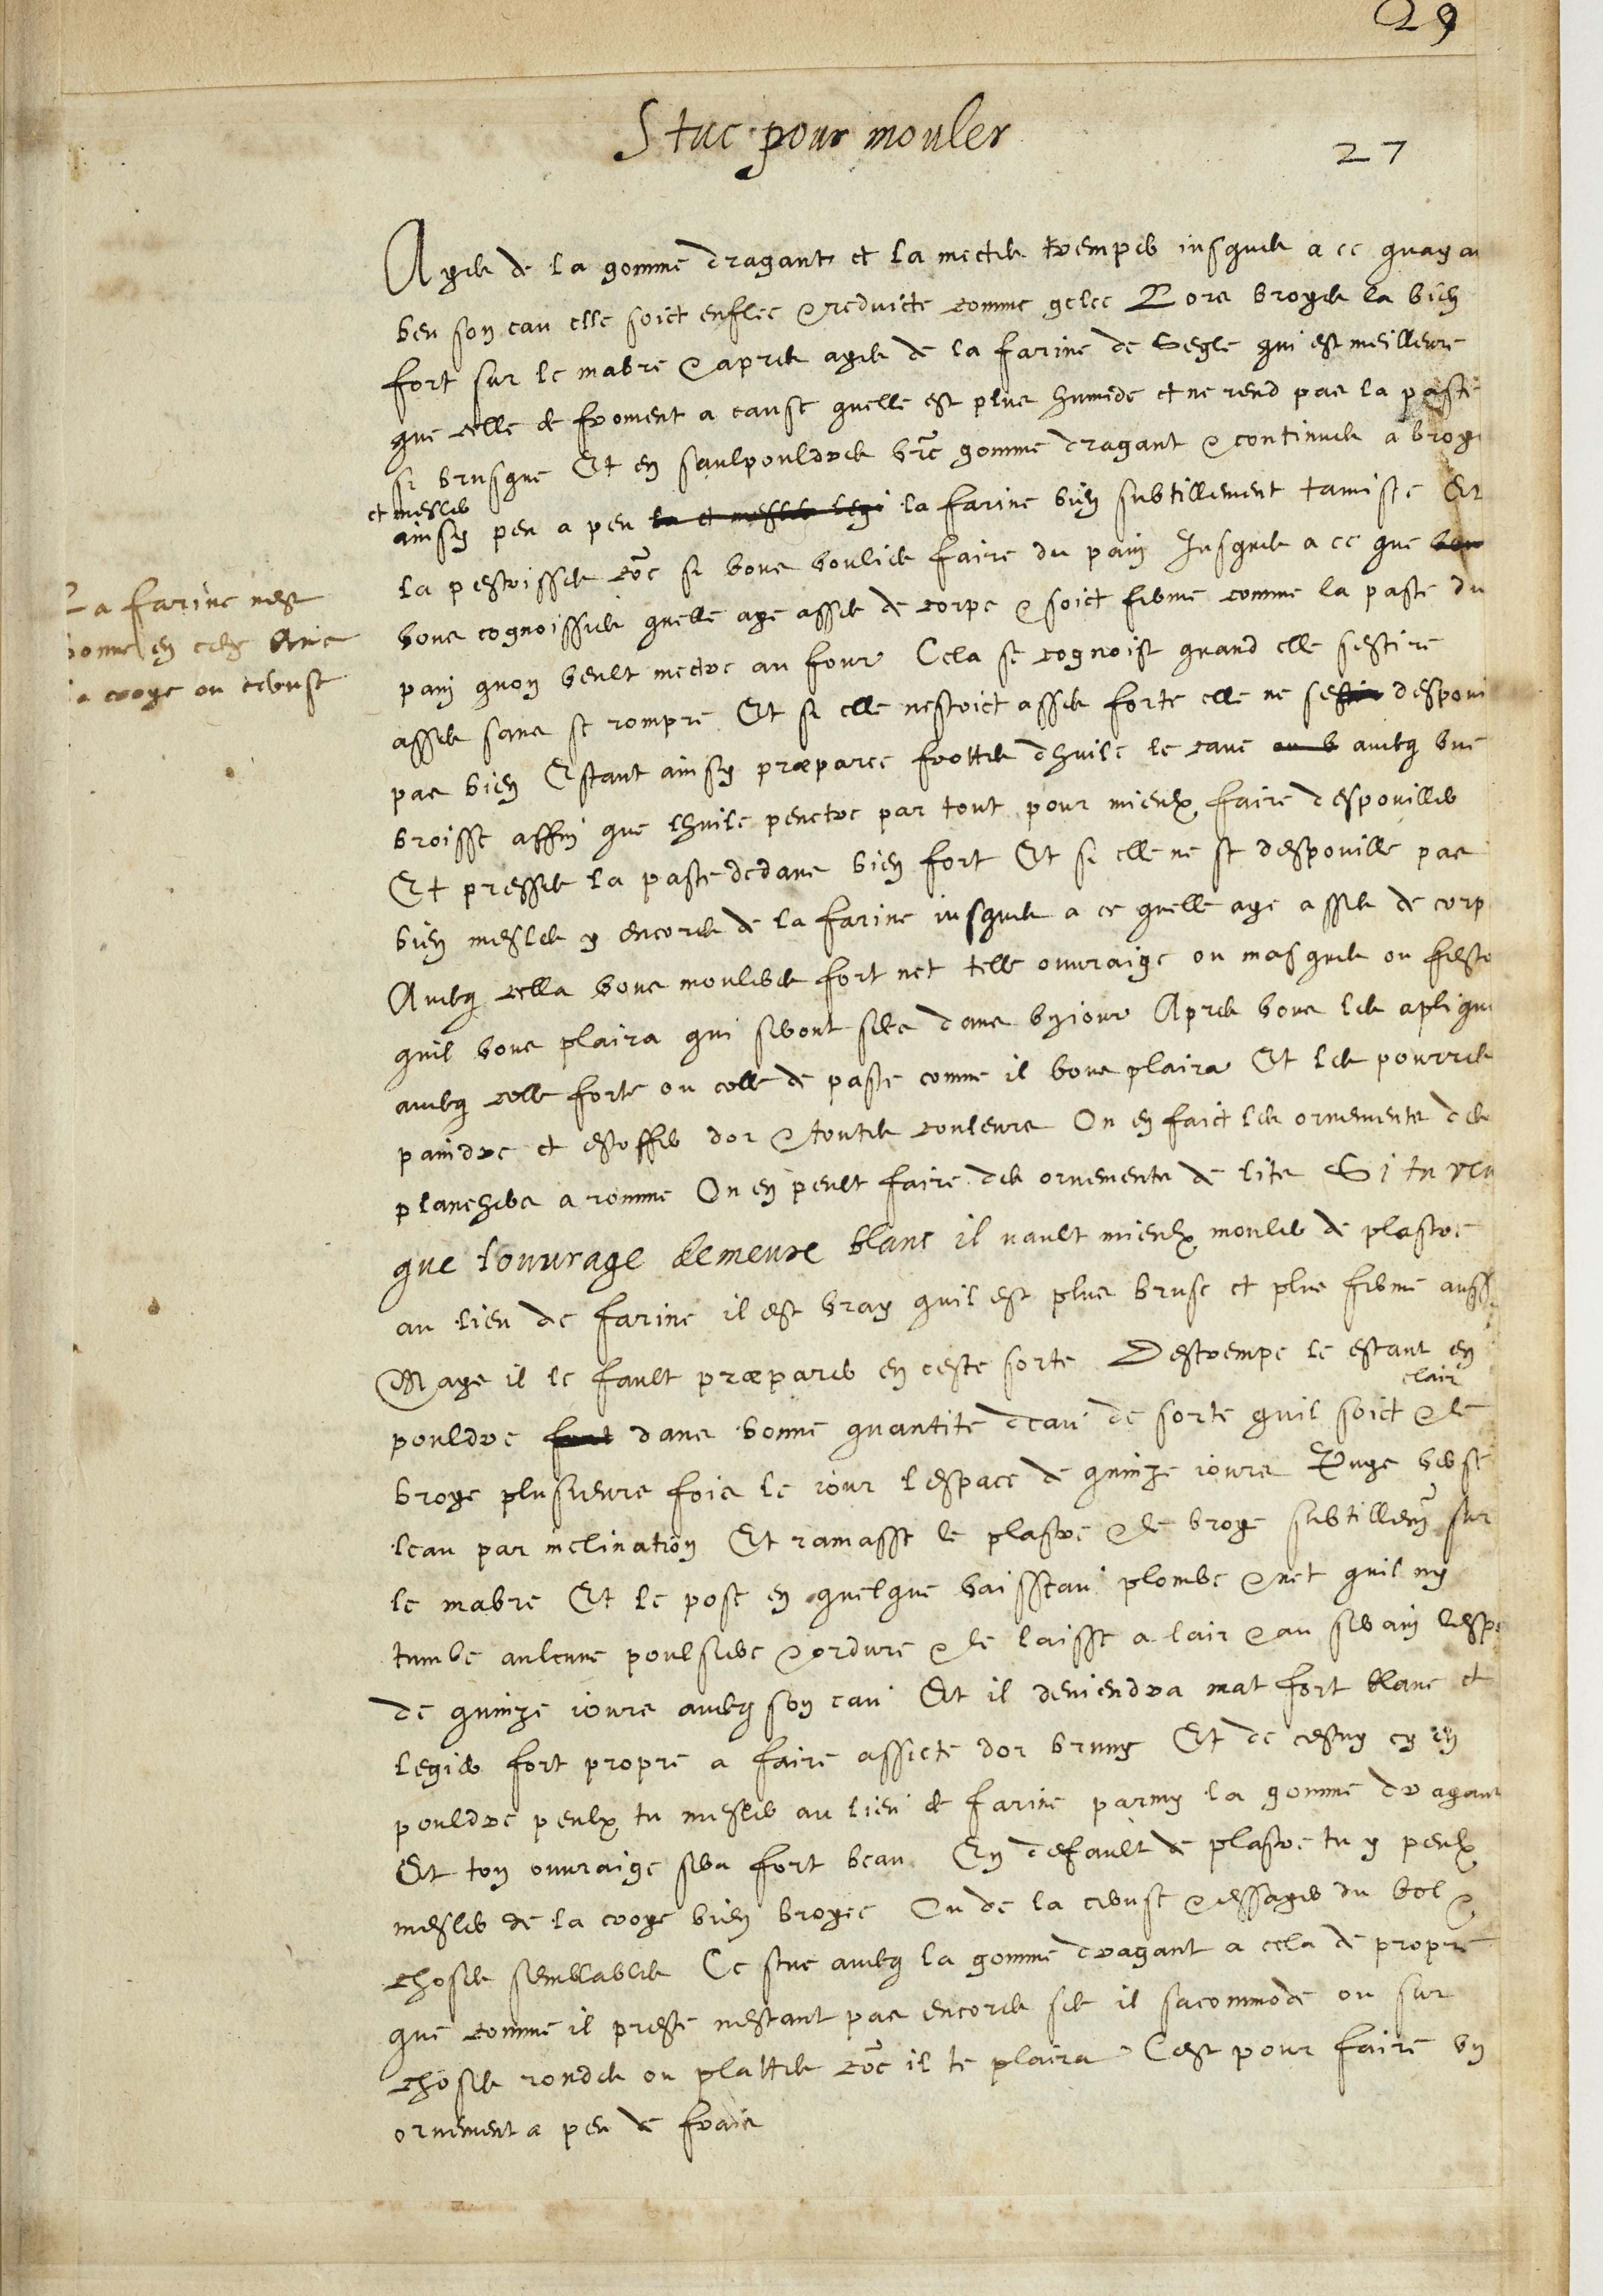 29
Stuc pour mouler
27
Ayes de la gomme dragant et la mectes tremper jusques a ce quay a
beu son eau elle soict enflee & reduicte comme gelee Lors broyes la bien
fort sur le mabre & apres ayes de la farine de segle qui est meilleure
que celle de froment a cause quelle est plus humide et ne rend pas la paste
si brusque Et en saulpouldres vre gomme dragant & continues a broye
et mesler
ainsy peu a peu la et mesler legi la farine bien subtillement tamisee Et
la pestrisses coe si vous vouliez faire du pain Jusques a ce que vou
vous cognoissies quelle aye asses de corps & soict ferme comme la paste du
pain quon veult mectre au four Cela se cognoist quand elle sestire
asses sans se rompre Et si elle nestoict asses forte elle ne se despoui
pas bien Estant ainsy præparee frottes dhuile le cave avecq une
broisse affin que lhuile penetre par tout pour mieulx faire despouiller
Et presses la paste dedans bien fort Et si elle ne se despouille pas
bien mesles y encores de la farine jusques a ce quelle aye asses de corp
Avecq cella vous moulerez fort net telle ouvraige ou masques ou festo
quil vous plaira qui seront secs dans un jour Apres vous les aplique
avecq colle forte ou colle de paste comme il vous plaira Et les pourres
paindre et estoffer dor & toutes couleurs On en faict les ornements des
planchers a romme On en peult faire des ornements de lits Si tu veu
que louvrage demeure blanc il vault mieulx mouler de plastre
au lieu de farine il est vray quil est plus brusc et plus ferme auss
Mays il le fault præparer en ceste sorte Destrempe le estant en
clair
pouldre fort dans bonne quantite deau de sorte quil soict & le
broye plusieurs fois le jour lespace de quinze jours Puys verse
leau par inclination Et ramasse le plastre & le broye subtillem sur
le mabre Et le pose en quelque vaisseau plombe & net quil ny
tumbe aulcune poulsiere & ordure & le laisse a lair & au serain lespa
de quinze jours avecq son eau Et il deviendra mat fort blanc et
legier fort propre a faire assiete dor bruny Et de cestuy cy en
pouldre peulx tu mesler au lieu de farine parmy la gomme dragant
Et ton ouvraige sera fort beau En default de plastre tu y peulx
mesler de la croye bien broyee Ou de la ceruse & essayer du bol &
choses semblables Ce stuc avecq la gomme dragant a cela de propre
que comme il preste nestant pas encores sec il sacommode ou sur
choses rondes ou plattes coe il te plaira Cest pour faire un
ornement a peu de frais
La farine nest
bonne en cecy Mais
la croye ou ceruse